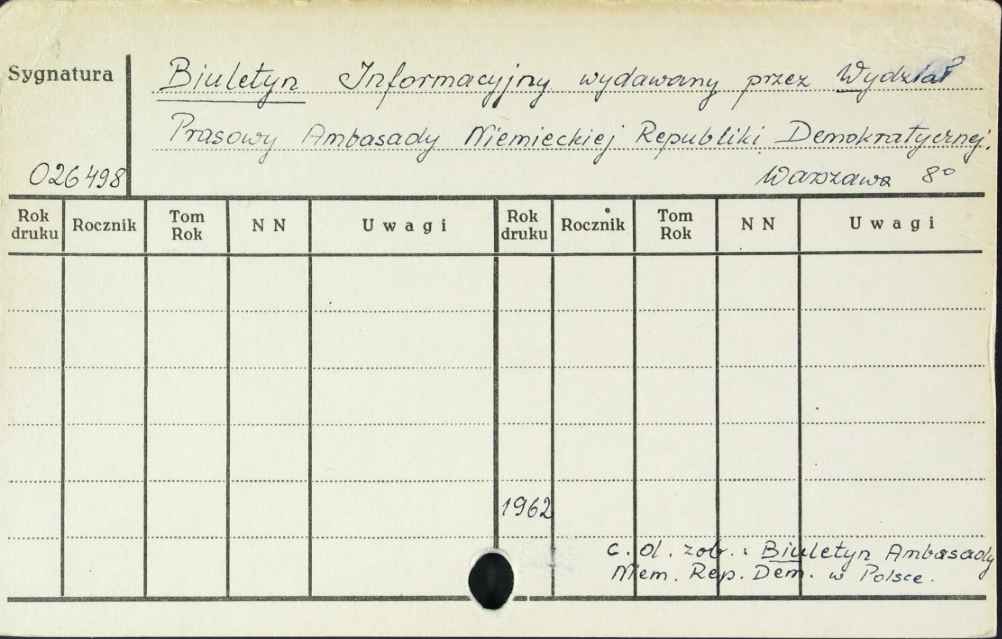 Sygnatura
Biuletyn Informacyjny wydawany przez Wydział
Prasowy Ambasady Niemieckiej Republiki Demokratycznej.
026498
Warszawa 8°
Rok druku Rocznik Tom Rok N N Uwagi Rok druku Rocznik Tom Rok N N Uwagi
1962
c. d. zob.: Biuletyn Ambasady
Niem. Rep. Dem. w Polsce.